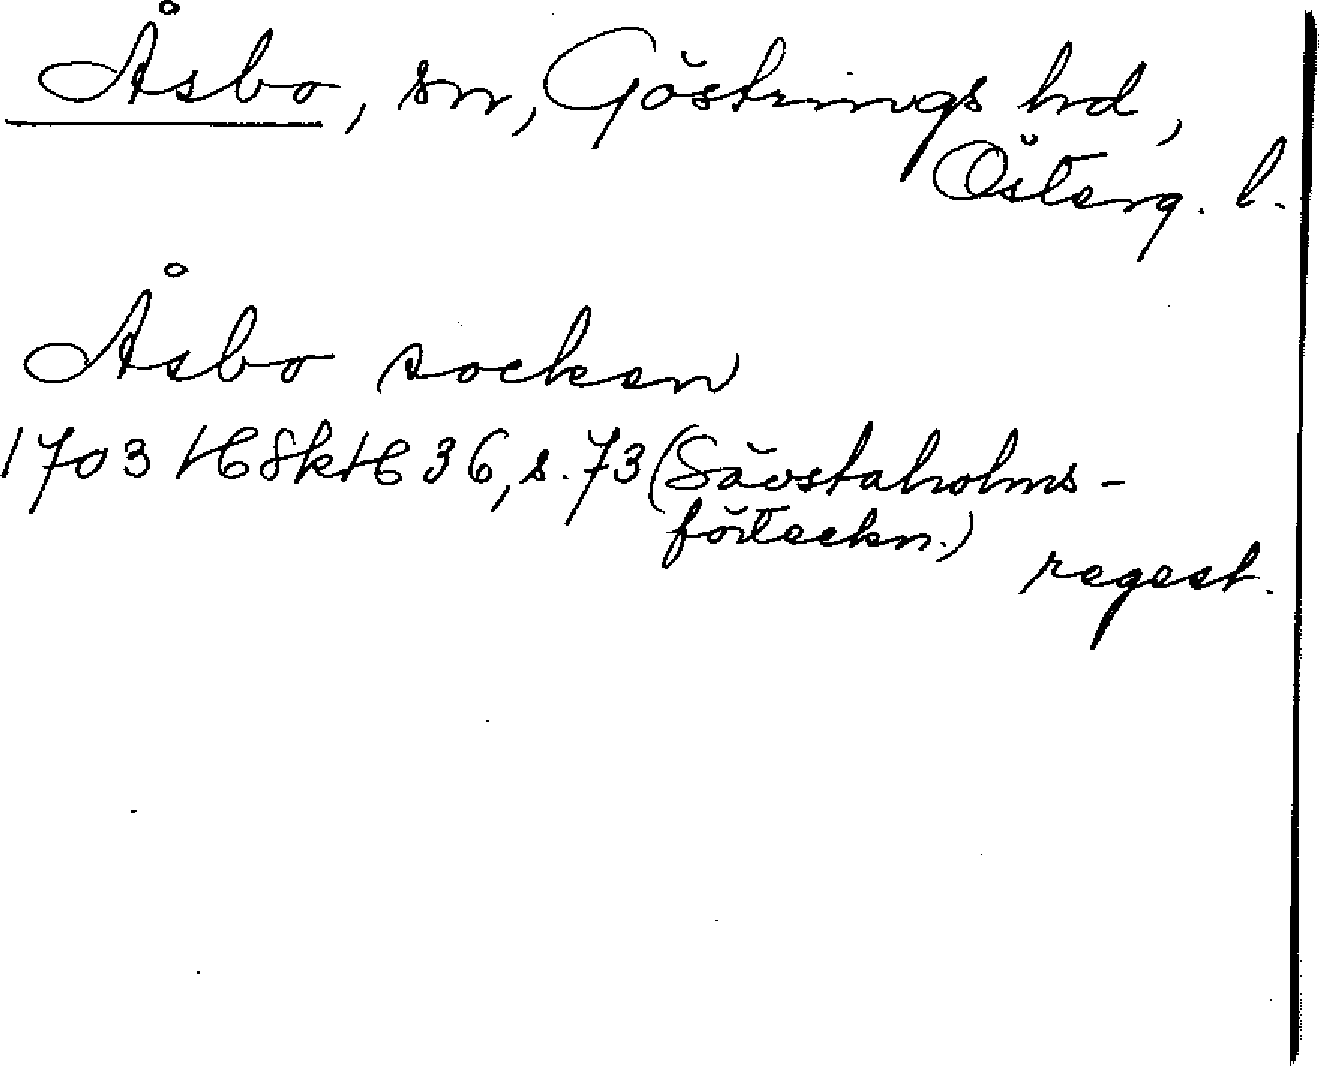 Åsbo, sn, Göstrings hd,
Österg. l.
Åsbo socken
1703 HSkH 36, s. 73 (Sävstaholms-
förteckn.)
regest.